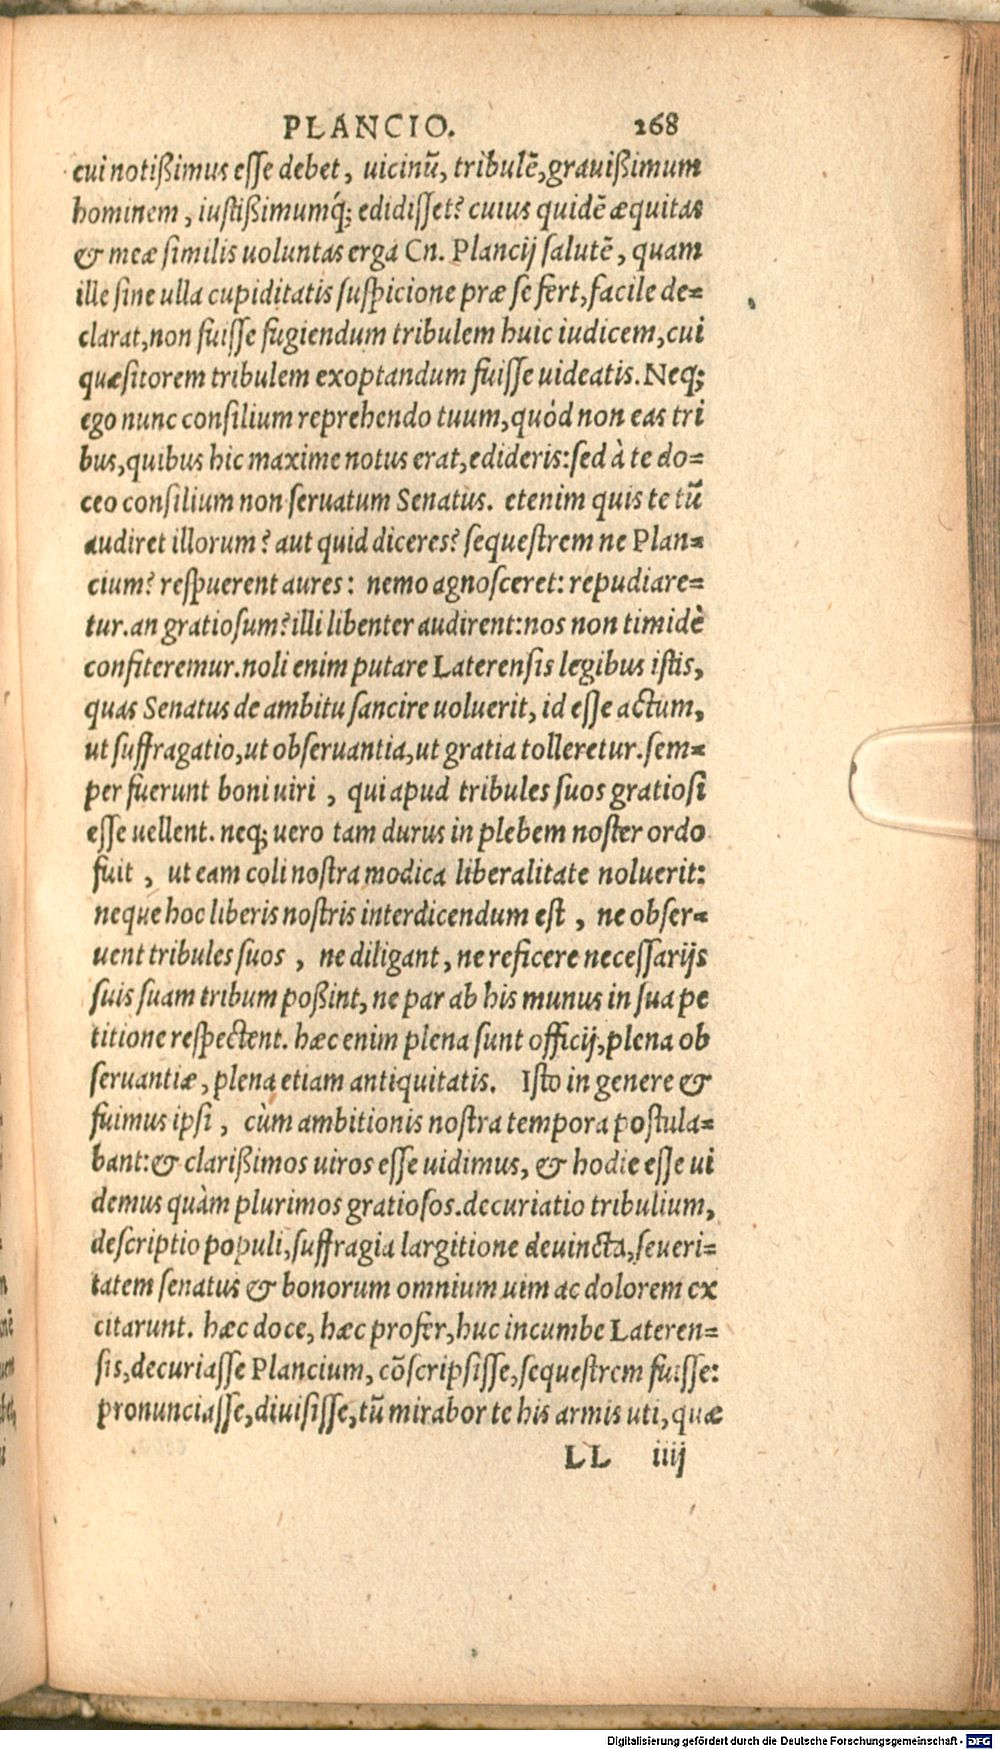 PLANCIO. 268
cui notißimus esse debet, uicinū, tribulē, grauißimum
hominem, iustißimumq́; edidisset? cuius quidē æquitas
& meæ similis uoluntas erga Cn. Plancij salutē, quam
ille sine ulla cupiditatis suspicione præ se fert, facile de=
clarat, non fuisse fugiendum tribulem huic iudicem, cui
quæsitorem tribulem exoptandum fuisse uideatis. Neq;
ego nunc consilium reprehendo tuum, quòd non eas tri
bus, quibus hic maxime notus erat, edideris: sed à te do=
ceo consilium non seruatum Senatus. etenim quis te tū
audiret illorum? aut quid diceres? sequestrem ne Plan=
cium? respuerent aures: nemo agnosceret: repudiare=
tur. an gratiosum? illi libenter audirent: nos non timidè
confiteremur. noli enim putare Laterensis legibus istis,
quas Senatus de ambitu sancire uoluerit, id esse actum,
ut suffragatio, ut obseruantia, ut gratia tolleretur. sem=
per fuerunt boni uiri, qui apud tribules suos gratiosi
esse uellent. neq; uero tam durus in plebem noster ordo
fuit, ut eam coli nostra modica liberalitate noluerit:
neque hoc liberis nostris interdicendum est, ne obser=
uent tribules suos, ne diligant, ne reficere necessarijs
suis suam tribum poßint, ne par ab his munus in sua pe
titione respectent. hæc enim plena sunt officij, plena ob
seruantiæ, plena etiam antiquitatis. Isto in genere &
fuimus ipsi, cùm ambitionis nostra tempora postula=
bant: & clarißimos uiros esse uidimus, & hodie esse ui
demus quàm plurimos gratiosos. decuriatio tribulium,
descriptio populi, suffragia largitione deuincta, seueri=
tatem senatus & bonorum omnium uim ac dolorem ex
citarunt. hæc doce, hæc profer, huc incumbe Lateren=
sis, decuriasse Plancium, cōscripsisse, sequestrem fuisse:
pronunciasse, diuisisse, tū mirabor te his armis uti, quæ
LL iiij
Digitalisierung gefördert durch die Deutsche Forschungsgemeinschaft - DFG